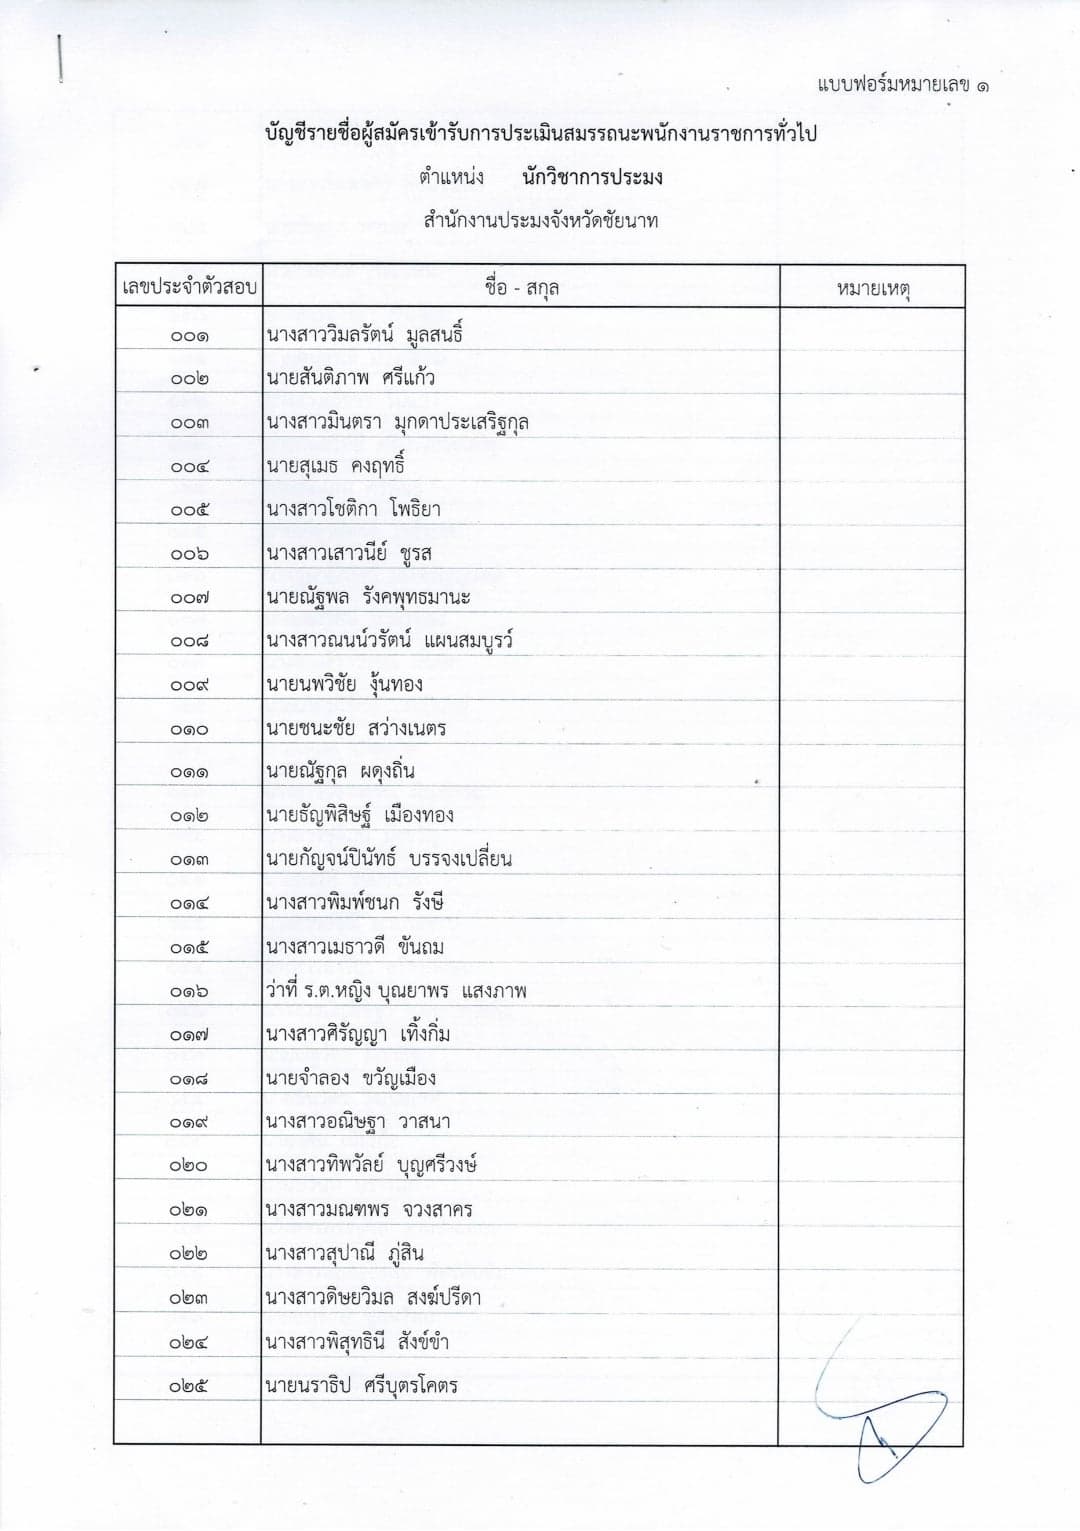 แบบฟอร์มหมายเลข ๑
บัญชีรายชื่อผู้สมัครเข้ารับการประเมินสมรรถนะพนักงานราชการทั่วไป
ตำแหน่ง นักวิชาการประมง
สำนักงานประมงจังหวัดชัยนาท
เลขประจำตัวสอบ ชื่อ - สกุล หมายเหตุ
๐๐๑ นางสาววิมลรัตน์ มูลสนธิ์
๐๐๒ นายสันติภาพ ศรีแก้ว
๐๐๓ นางสาวมินตรา มุกดาประเสริฐกุล
๐๐๔ นายสุเมธ คงฤทธิ์
๐๐๕ นางสาวโชติกา โพธิยา
๐๐๖ นางสาวเสาวนีย์ ชูรส
๐๐๗ นายณัฐพล รังคพุทธมานะ
๐๐๘ นางสาวณนน์วรัตน์ แผนสมบูรว์
๐๐๙ นายนพวิชัย งุ้นทอง
๐๑๐ นายชนะชัย สว่างเนตร
๐๑๑ นายณัฐกุล ผดุงถิ่น
๐๑๒ นายธัญพิสิษฐ์ เมืองทอง
๐๑๓ นายกัญจน์ปินัทธ์ บรรจงเปลี่ยน
๐๑๔ นางสาวพิมพ์ชนก รังษี
๐๑๕ นางสาวเมธาวดี ขันถม
๐๑๖ ว่าที่ ร.ต.หญิง บุณยาพร แสงภาพ
๐๑๗ นางสาวศิรัญญา เทิ้งกิ่ม
๐๑๘ นายจำลอง ขวัญเมือง
๐๑๙ นางสาวอณิษฐา วาสนา
๐๒๐ นางสาวทิพวัลย์ บุญศรีวงษ์
๐๒๑ นางสาวมณฑพร จวงสาคร
๐๒๒ นางสาวสุปาณี ภู่สิน
๐๒๓ นางสาวดิษยวิมล สงฆ์ปรีดา
๐๒๔ นางสาวพิสุทธินี สังข์ขำ
๐๒๕ นายนราธิป ศรีบุตรโคตร